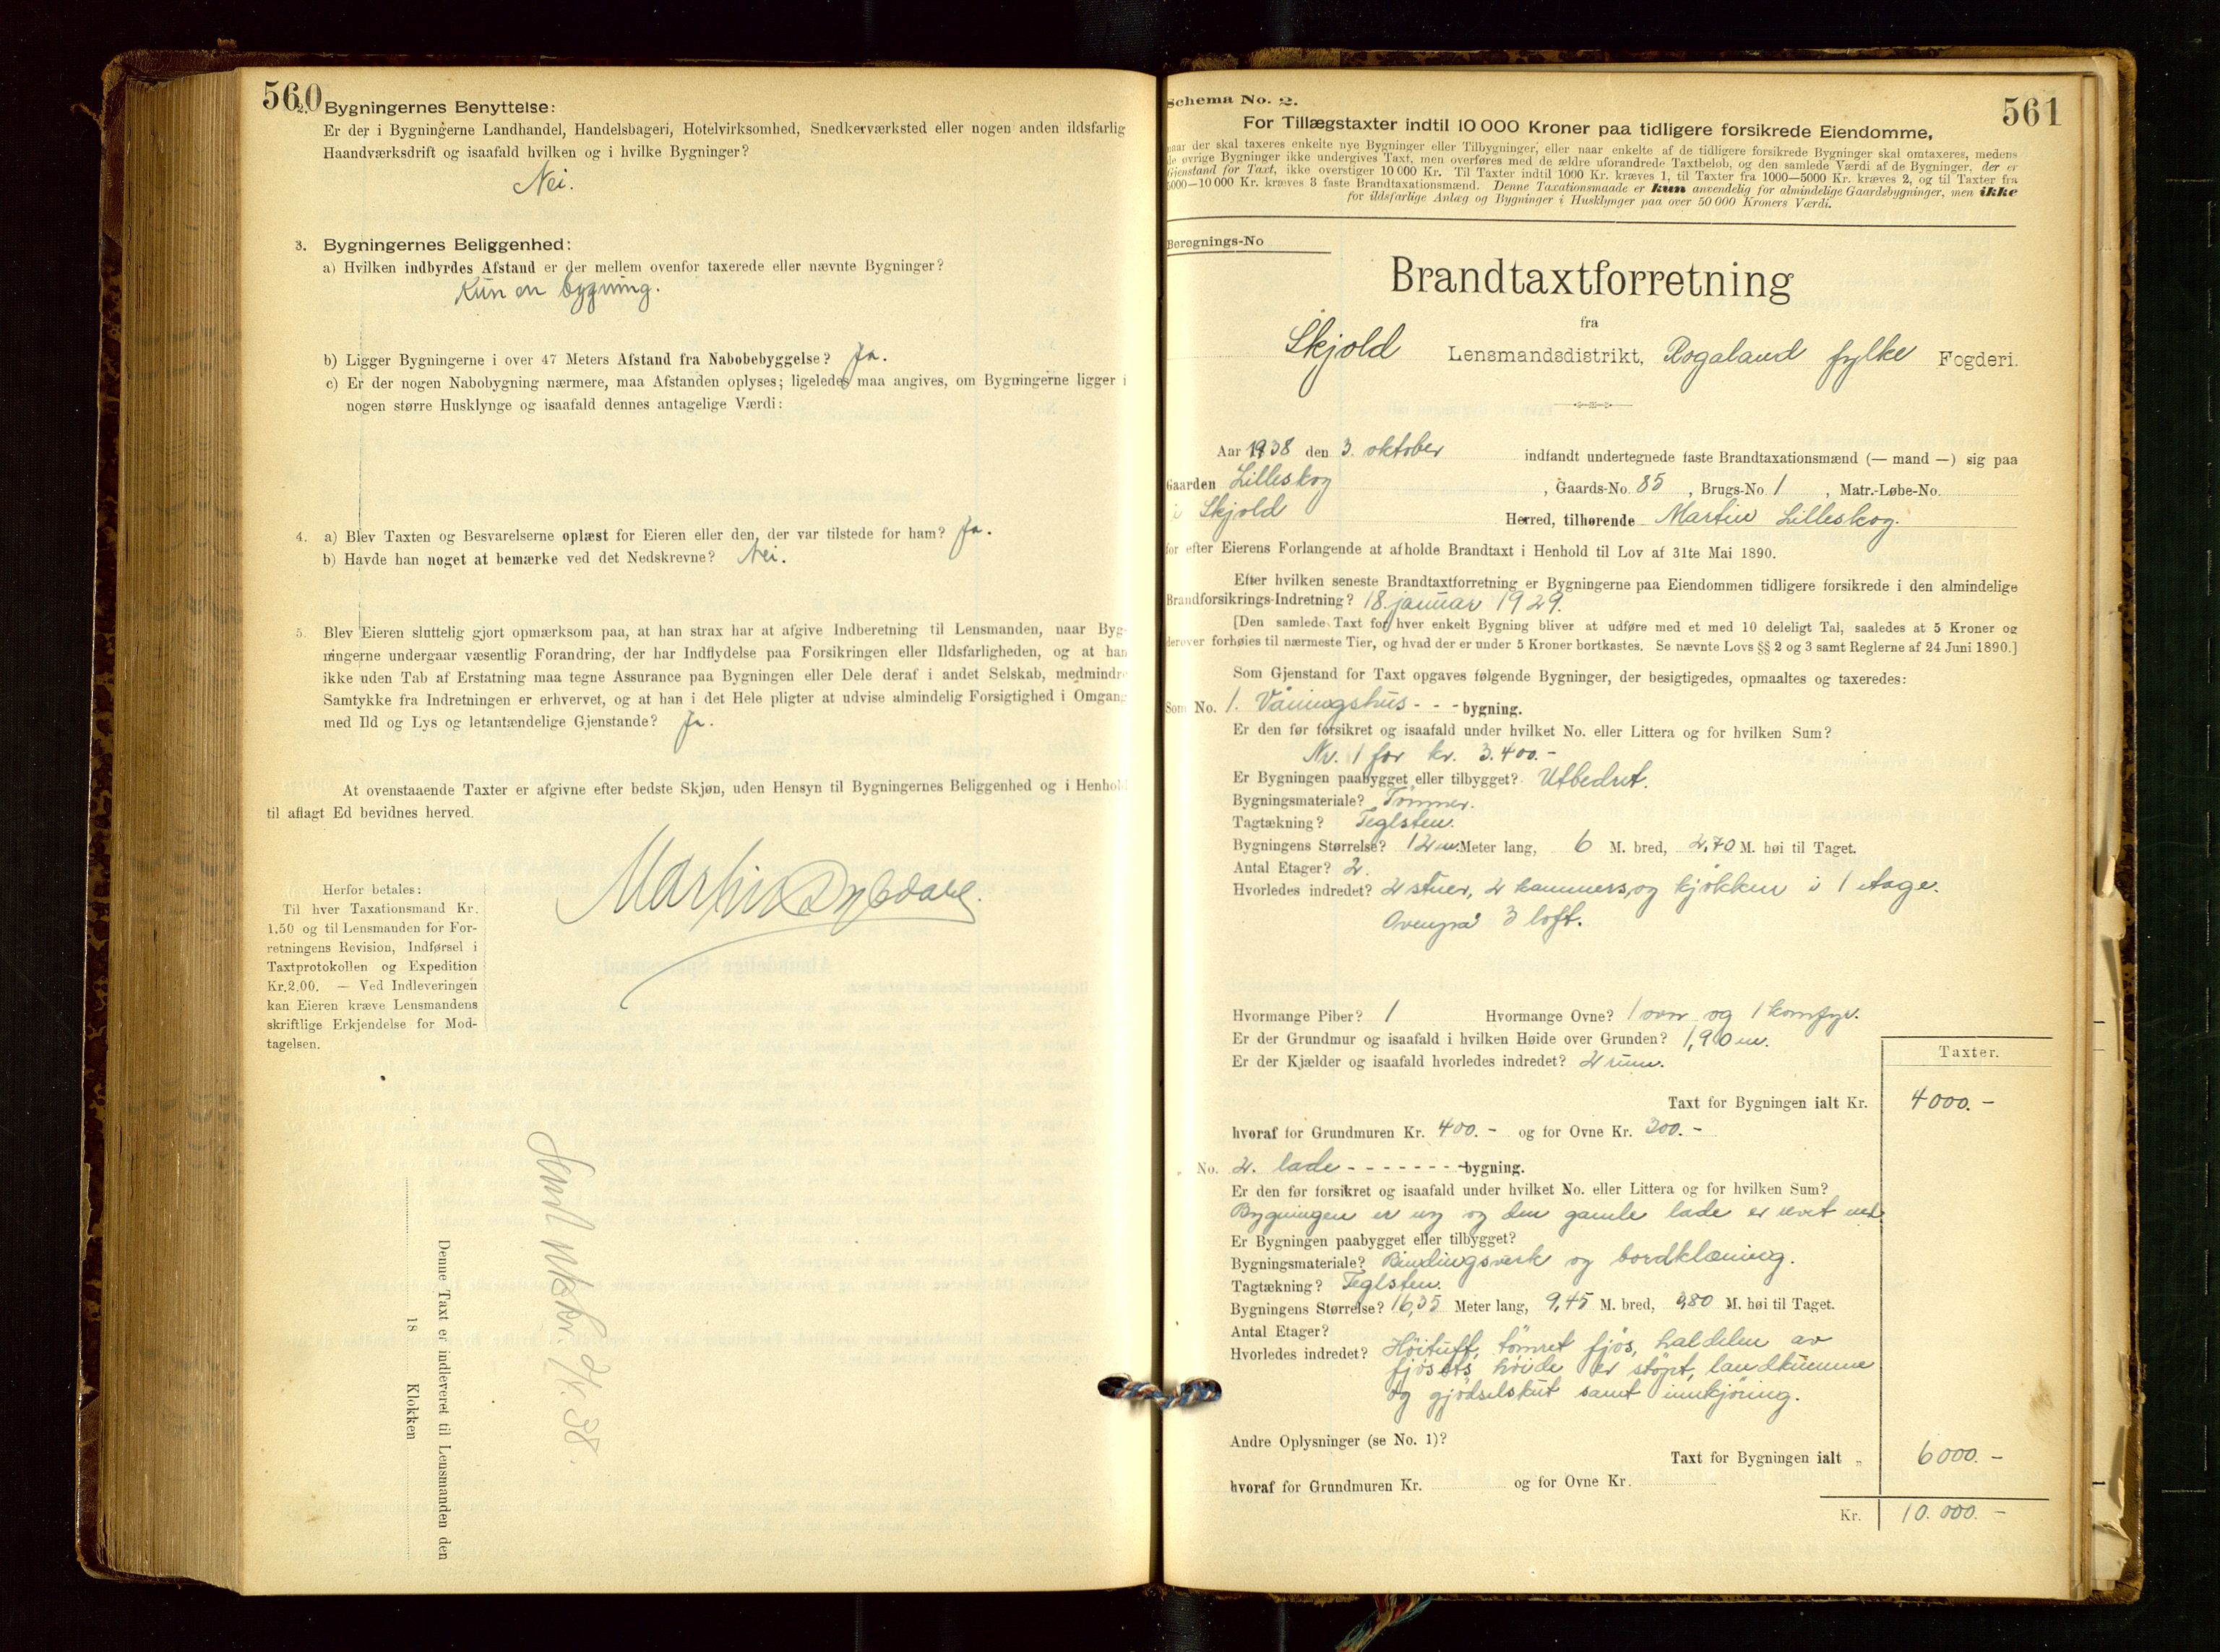 560
2. Bygningernes Benyttelse:
Er der i Bygningerne Landhandel, Handelsbageri, Hotelvirksomhed, Snedkerværksted eller nogen anden ildsfarlig
Haandværksdrift og isaafald hvilken og i hvilke Bygninger?
Nei.
3. Bygningernes Beliggenhed:
a) Hvilken indbyrdes Afstand er der mellem ovenfor taxerede eller nævnte Bygninger?
Kun en bygning.
b) Ligger Bygningerne i over 47 Meters Afstand fra Nabobebyggelse? Ja.
c) Er der nogen Nabobygning nærmere, maa Afstanden oplyses; ligeledes maa angives, om Bygningerne ligger i
nogen større Husklynge og isaafald dennes antagelige Værdi:
4. a) Blev Taxten og Besvarelserne oplæst for Eieren eller den, der var tilstede for ham? Ja.
b) Havde han noget at bemærke ved det Nedskrevne? Nei.
5. Blev Eieren sluttelig gjort opmærksom paa, at han strax har at afgive Indberetning til Lensmanden, naar Byg-
ningerne undergaar væsentlig Forandring, der har Indflydelse paa Forsikringen eller Ildsfarligheden, og at han
ikke uden Tab af Erstatning maa tegne Assurance paa Bygningen eller Dele deraf i andet Selskab, medmindre
Samtykke fra Indretningen er erhvervet, og at han i det Hele pligter at udvise almindelig Forsigtighed i Omgang
med Ild og Lys og letantændelige Gjenstande? Ja.
At ovenstaaende Taxter er afgivne efter bedste Skjøn, uden Hensyn til Bygningernes Beliggenhed og i Henhold
til aflagt Ed bevidnes herved.
Martin
Herfor betales:
Til hver Taxationsmand Kr.
1.50 og til Lensmanden for For-
retningens Revision, Indførsel i
Taxtprotokollen og Expedition
Kr. 2.00. — Ved Indleveringen
kan Eieren kræve Lensmandens
skriftlige Erkjendelse for Mod-
tagelsen.
Denne Taxt er indleveret til Lensmanden den
18 Klokken
Schema No. 2.
561
For Tillægstaxter indtil 10 000 Kroner paa tidligere forsikrede Eiendomme,
naar der skal taxeres enkelte nye Bygninger eller Tilbygninger, eller naar enkelte af de tidligere forsikrede Bygninger skal omtaxeres, medens
de øvrige Bygninger ikke undergives Taxt, men overføres med de ældre uforandrede Taxtbeløb, og den samlede Værdi af de Bygninger, der er
Gjenstand for Taxt, ikke overstiger 10 000 Kr. Til Taxter indtil 1000 Kr. kræves 1, til Taxter fra 1000—5000 Kr. kræves 2, og til Taxter fra
5000—10 000 Kr. kræves 3 faste Brandtaxationsmænd. Denne Taxationsmaade er kun anvendelig for almindelige Gaardsbygninger, men ikke
for ildsfarlige Anlæg og Bygninger i Husklynger paa over 50 000 Kroners Værdi.
Beregnings-No
Brandtaxtforretning
fra
Skjold Lensmandsdistrikt, Rogaland fylke Fogderi.
Aar 1938 den 3. oktober indfandt undertegnede faste Brandtaxationsmænd (— mand —) sig paa
Gaarden Lilleskog, Gaards-No. 85, Brugs-No. 1, Matr.-Løbe-No.
i Skjold Herred, tilhørende Martin Lilleskog.
for efter Eierens Forlangende at afholde Brandtaxt i Henhold til Lov af 31te Mai 1890.
Efter hvilken seneste Brandtaxtforretning er Bygningerne paa Eiendommen tidligere forsikrede i den almindelige
Brandforsikrings-Indretning? 18. januar 1929.
[Den samlede Taxt for hver enkelt Bygning bliver at udføre med et med 10 deleligt Tal, saaledes at 5 Kroner og
derover forhøies til nærmeste Tier, og hvad der er under 5 Kroner bortkastes. Se nævnte Lovs §§ 2 og 3 samt Reglerne af 24 Juni 1890.]
Som Gjenstand for Taxt opgaves følgende Bygninger, der besigtigedes, opmaaltes og taxeredes:
Som No. 1. Våningshus - - - bygning.
Er den før forsikret og isaafald under hvilket No. eller Littera og for hvilken Sum?
Nr. 1 for kr. 3.400.-
Er Bygningen paabygget eller tilbygget? Utbedret.
Bygningsmateriale? Tømmer.
Tagtækning? Teglsten.
Bygningens Størrelse? 12 m. Meter lang, 6 M. bred, 2,70 M. høi til Taget.
Antal Etager? 2.
Hvorledes indredet? 2 stuer, 2 kammers, og kjøkken i 1 etage.
Ovenpå 3 loft.
Hvormange Piber? 1 Hvormange Ovne? 1 ovn og 1 komfyr.
Er der Grundmur og isaafald i hvilken Høide over Grunden? 1,90 m.
Er der Kjælder og isaafald hvorledes indredet? 2 rum.
Taxter.
Taxt for Bygningen ialt Kr. 4000.-
hvoraf for Grundmuren Kr. 400.- og for Ovne Kr. 200.-
" No. 2. lade - - - - - - - bygning.
Er den før forsikret og isaafald under hvilket No. eller Littera og for hvilken Sum?
Bygningen er ny og den gamle lade er revet ned.
Er Bygningen paabygget eller tilbygget?
Bygningsmateriale? Bindingsverk og bordklæning.
Tagtækning? Teglsten.
Bygningens Størrelse? 16,35 Meter lang, 9,45 M. bred, 3,80 M. høi til Taget.
Antal Etager?
Hvorledes indredet? Høituft, tømret fjøs, haldelen av
fjøsets høide er støpt, landkumme
og gjødselskut samt innkjøring.
Andre Oplysninger (se No. 1)?
Taxt for Bygningen ialt " 6000.-
hvoraf for Grundmuren Kr. og for Ovne Kr.
Kr. 10.000.-